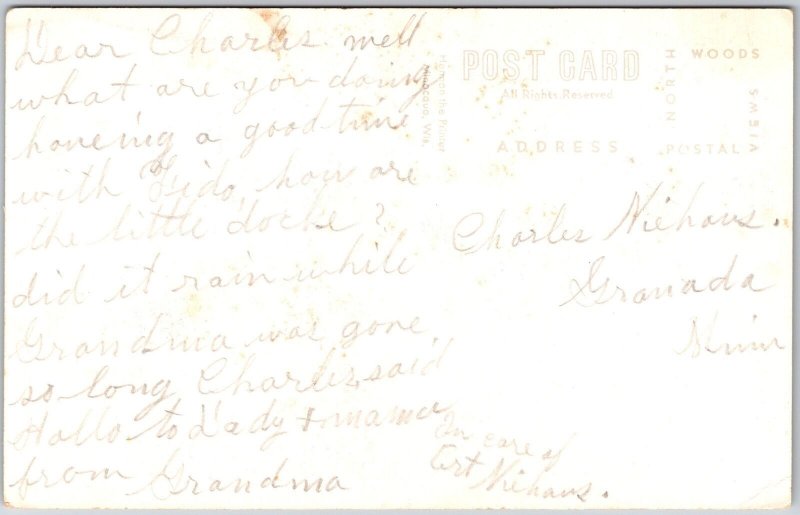 Dear Charles well
what are you doing
haveing a good time
with Fido, how are
the little docke?
did it rain while
Grandma was gone
so long Charles, said
Hallo to Dady + mama
from Grandma
Harmon the Printer
Minocqua, Wis.
POST CARD
All Rights Reserved
ADDRESS
NORTH WOODS
POSTAL VIEWS
Charles Niehaus.
Granada
Minn
In care of
Art Niehaus.